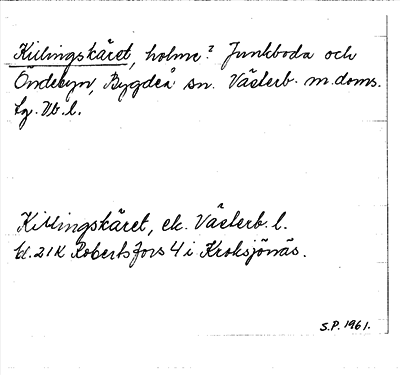 Killingskäret, holme? Junkboda och
Öndebyn, Bygdeå sn. Västerb. m. doms.
lg. Vb. l.
Killingskäret, ek. Västerb. l.
bl. 21K Robertsfors 4 i Kroksjönäs.
S.P. 1961.